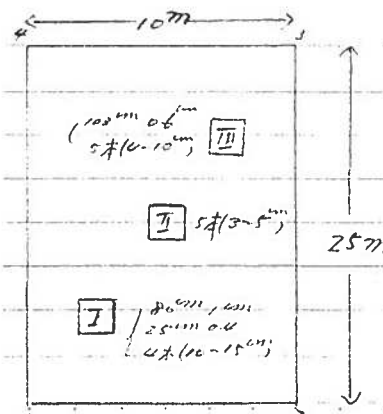 4 10m 3
(108cm 0.6cm
5本(4-10cm) III
II 5本(3-5cm)
25m
I 80cm, cm
25cm 0.4
4本(10-15cm)